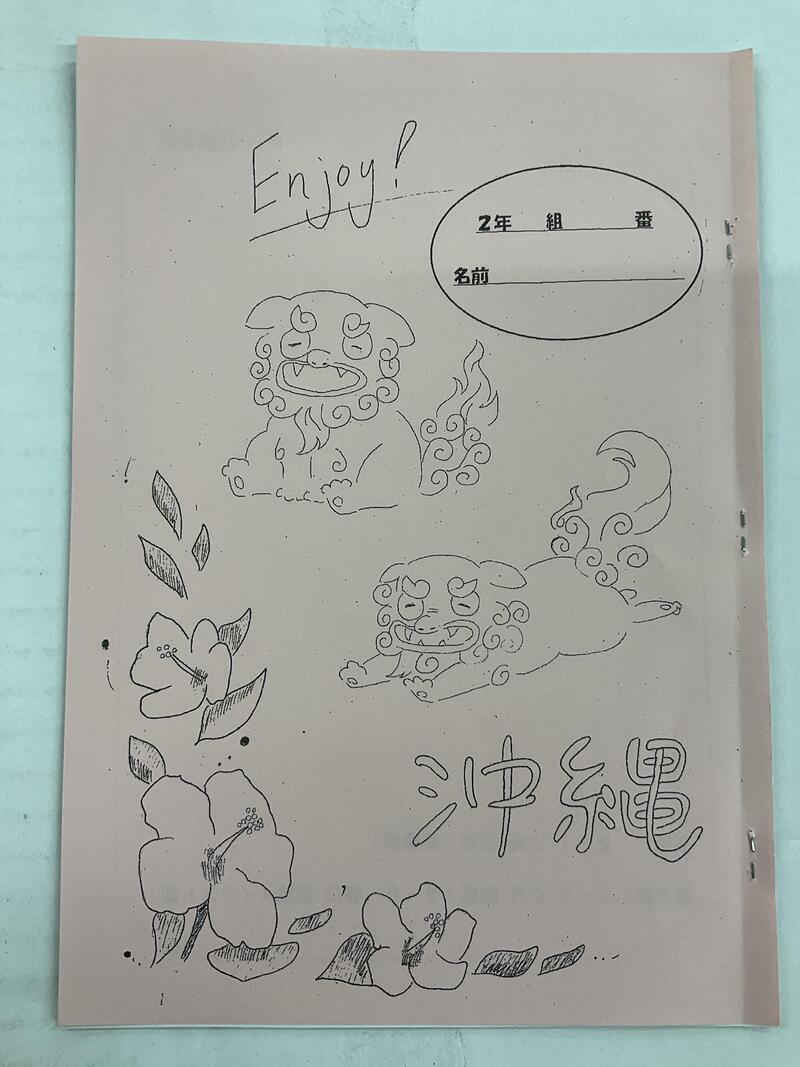 Enjoy!
2年 組 番
名前
沖縄